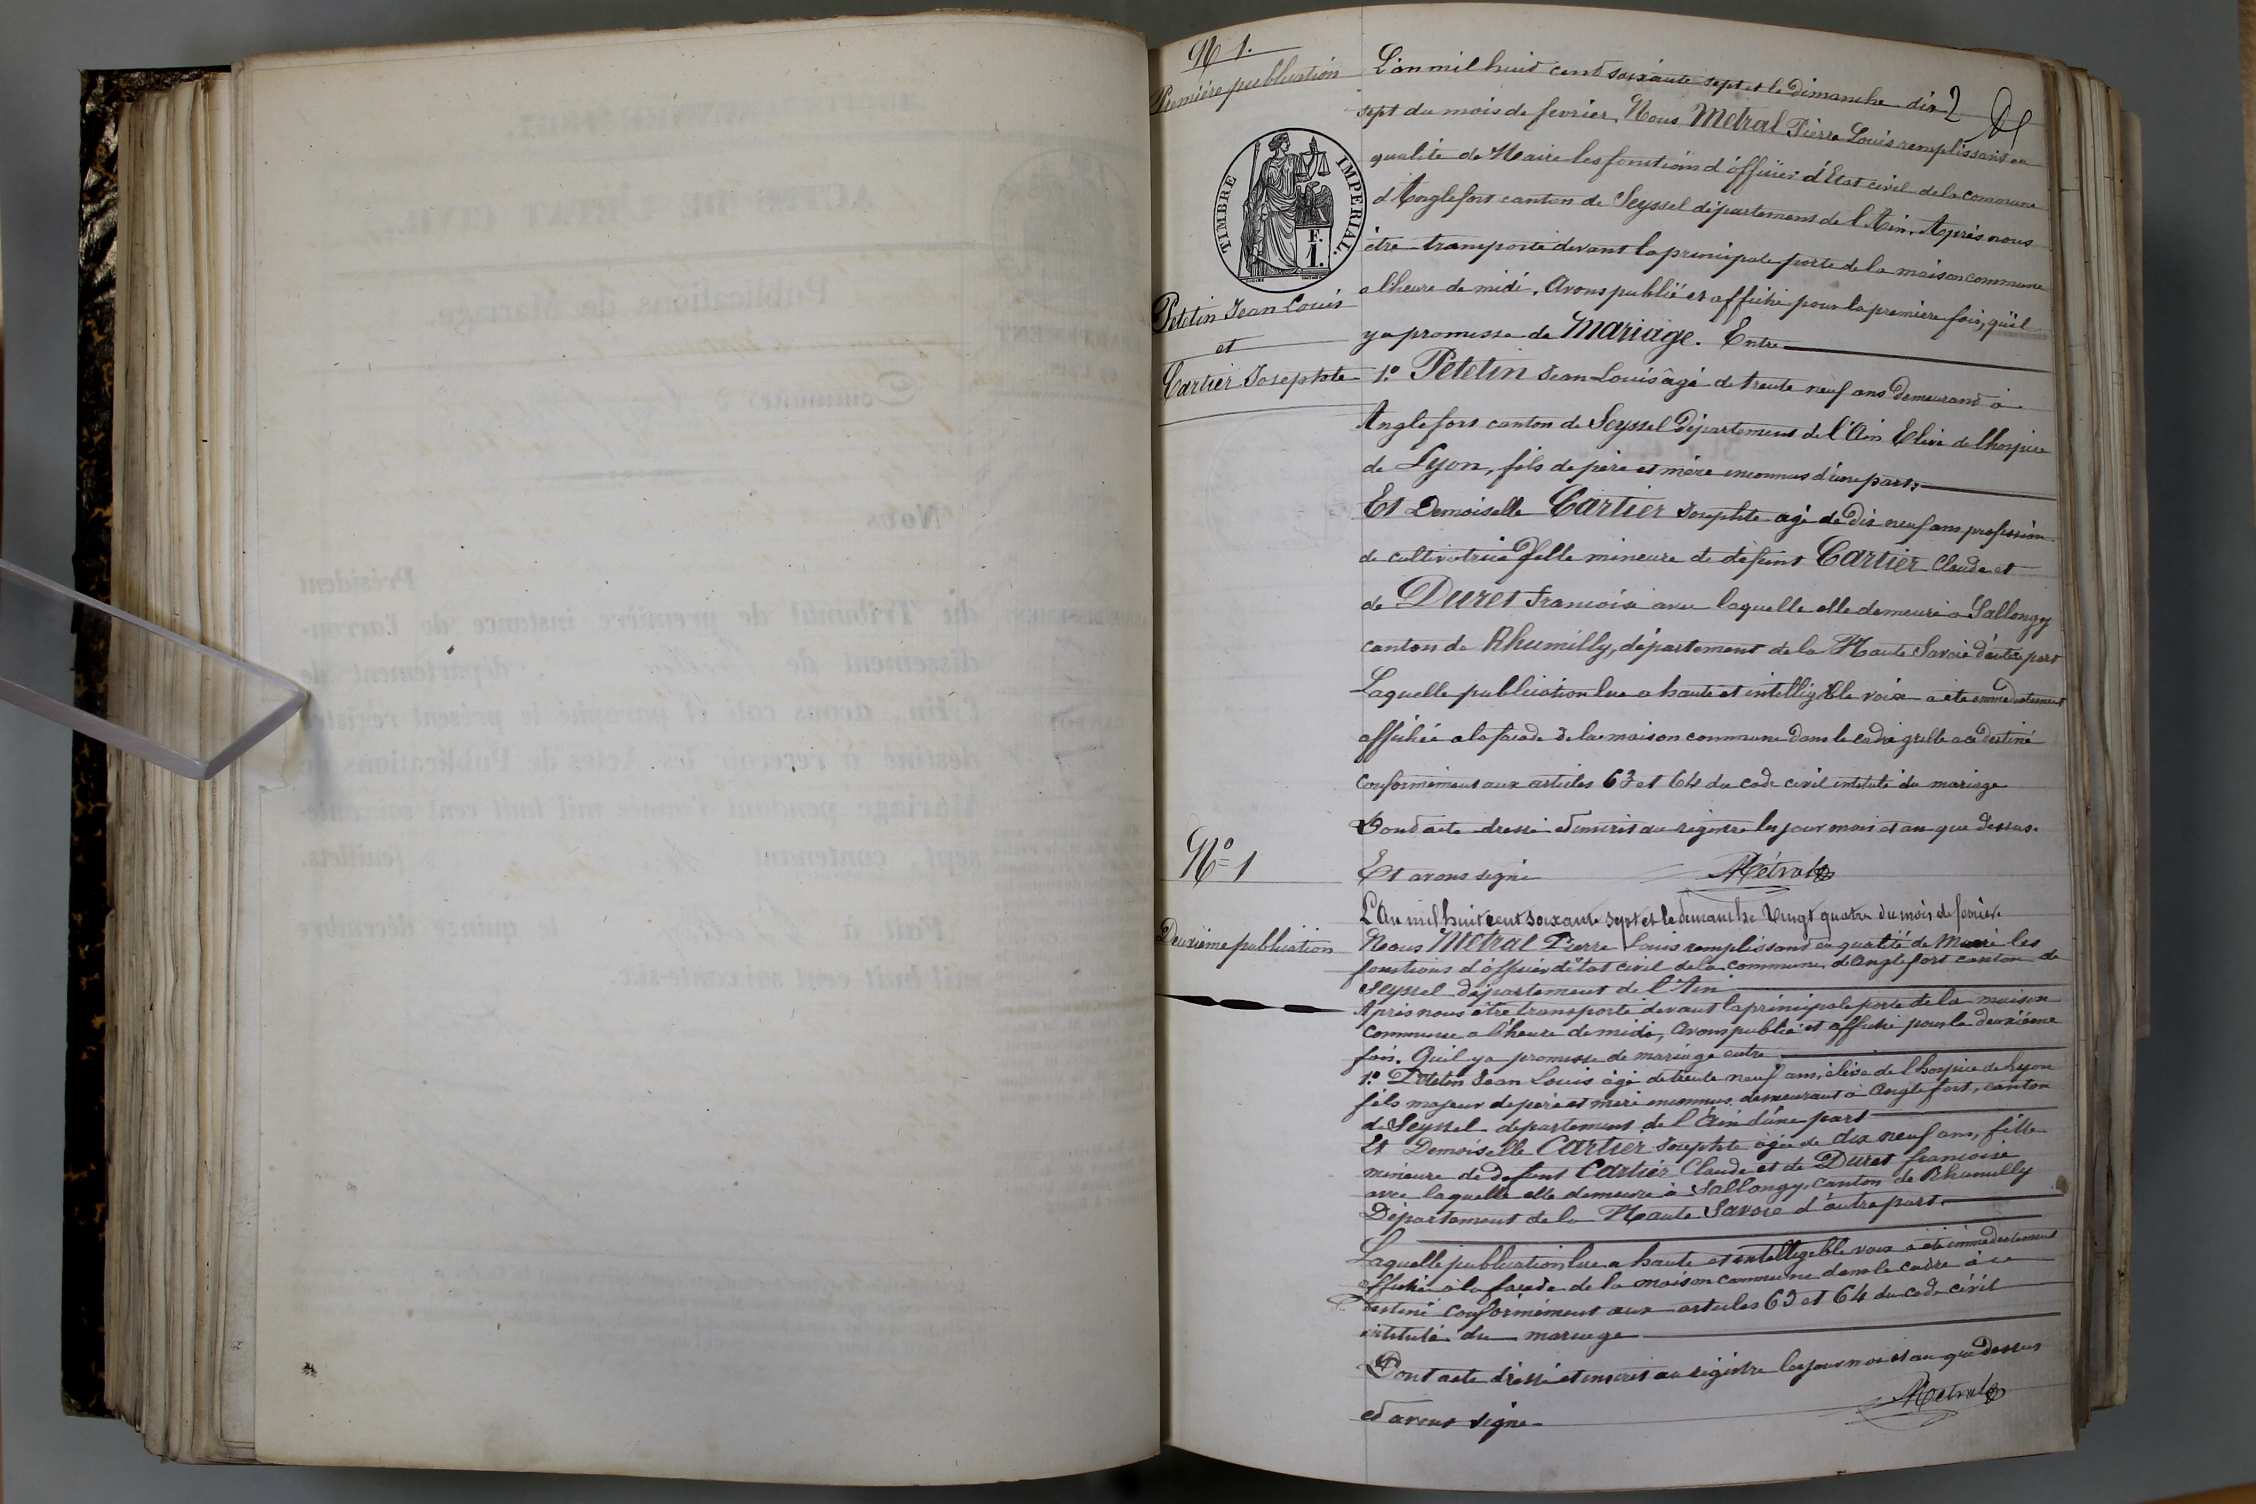 N 1.
Première publication
TIMBRE IMPERIAL.
F.
1.
Petetin Jean Louis
et
Cartier Josephte
2
L'an mil huit cent soixante sept et le Dimanche dix
sept du mois de fevrier, Nous Metral Pierre Louis remplissant en
qualité de Maire les fonctions d'officier d'Etat civil de la commune
d'Anglefort canton de Seyssel département de l'Ain. Après nous
être transporté devant la principale porte de la maison commune
a l'heure de midi, Avons publié et affiché pour la première fois, qu'il
y a promesse de Mariage. Entre
1.° Petetin Jean Louis âgé de trente neuf ans Demeurand à
Anglefort canton de Seyssel Département de l'Ain Elève de lhospice
de Lyon, fils de père et mère inconnus d'une part.
Et Demoiselle Cartier Josephte agé de Dix neuf ans profession
de cultivatrice fille mineure de défunt Cartier Claude et
de Duret Francoise avec laquelle elle demeure a Sallongy
canton de Rhumilly, département de la Haute Savoie d'autre part
Laquelle publication lue a haute et intelligible voix a été immediatement
affichée a la facade de la maison commune dans le cadre grille a ce destiné
conformément aux articles 63 et 64 du code civil intitulé du mariage
Dont acte dressé et inscrit au registre les jour mois et an que dessus.
Et avons signé
Métral
N° 1
Deuxième publication
L'An mil huit cent soixante sept et le dimanche Vingt quatre du mois de fevrier
Nous Metral Pierre Louis remplissant en qualité de Maire les
fonctions d'officier d'état civil de la commune d'Anglefort canton de
Seyssel département de l'Ain
Après nous être transporté devant la principale porte de la maison
commune a l'heure de midi, Avons publié et affiché pour la deuxième
fois. Qu'il y a promesse de mariage entre
1.° Petetin Jean Louis âgé de trente neuf ans, élève de l hospice de Lyon
fils majeur de père et mère inconnus demeurant à Anglefort, canton
de Seyssel departement de l'Ain d'une part
Et Demoiselle Cartier Josephte âgée de dix neuf ans, fille
mineure de defunt Cartier Claude et de Duret francoise
avec laquelle elle demeure à Sallongy, canton de Rhumilly
Département de la Haute Savoie d'autre part.
Laquelle publication lue a haute et intelligible voix a été immediatement
affichée à la facade de la maison commune dans le cadre à ce
destiné conformément aux articles 63 et 64 du code civil
intitulé du mariage
Dont acte dressé et inscrit au régistre les jour mois et an que dessus
et avons signé
Metral